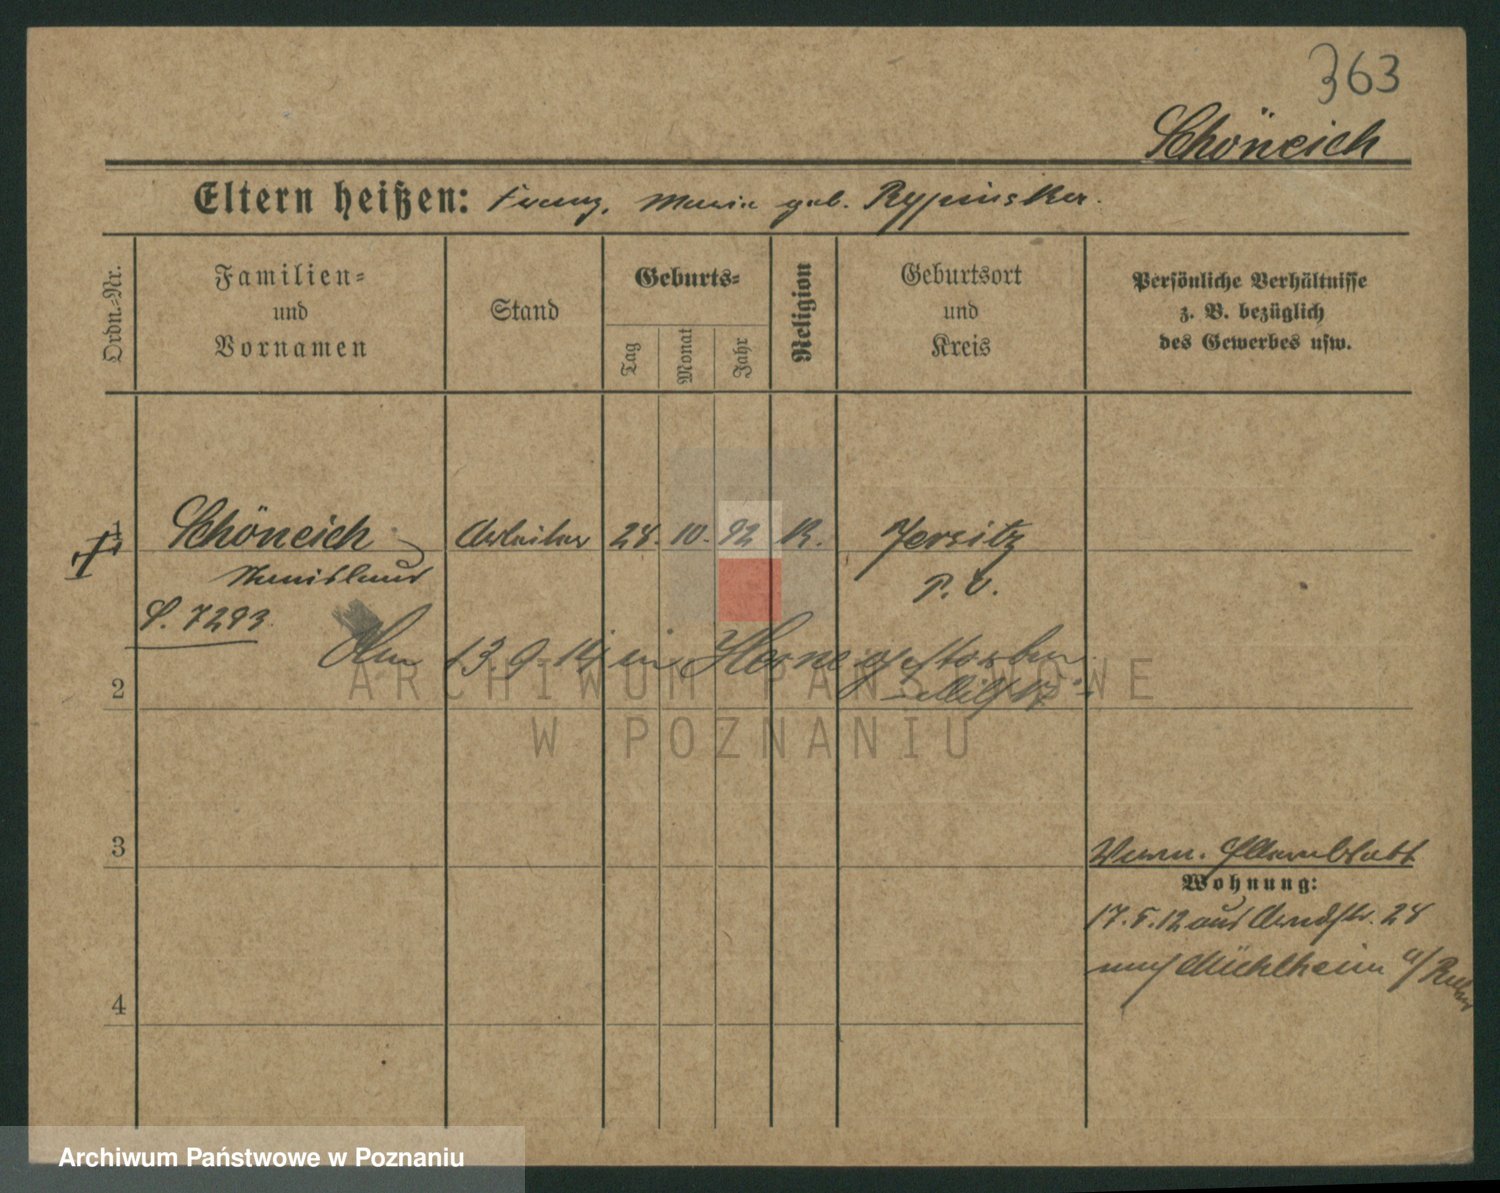 363
Schöneich
Eltern heißen: Franz, Maria geb. Rypinska.
Ordn.-Nr.
Familien-
und
Vornamen
Stand
Geburts-
Tag
Monat
Jahr
Religion
Geburtsort
und
Kreis
Persönliche Verhältnisse
z. B. bezüglich
des Gewerbes usw.
1 Schöneich Arbeiter 28. 10. 92 K. Jersitz
Stanislaus P. O.
S. 7293
Am 13.9.14 in Herne gestorben
2
ARCHIWUM PAŃSTWOWE
W POZNANIU
3
Verm. Elternblatt
Wohnung:
17.5.12 aus Arndtstr. 28
nach Mühlheim a/Ruhr
4
Archiwum Państwowe w Poznaniu